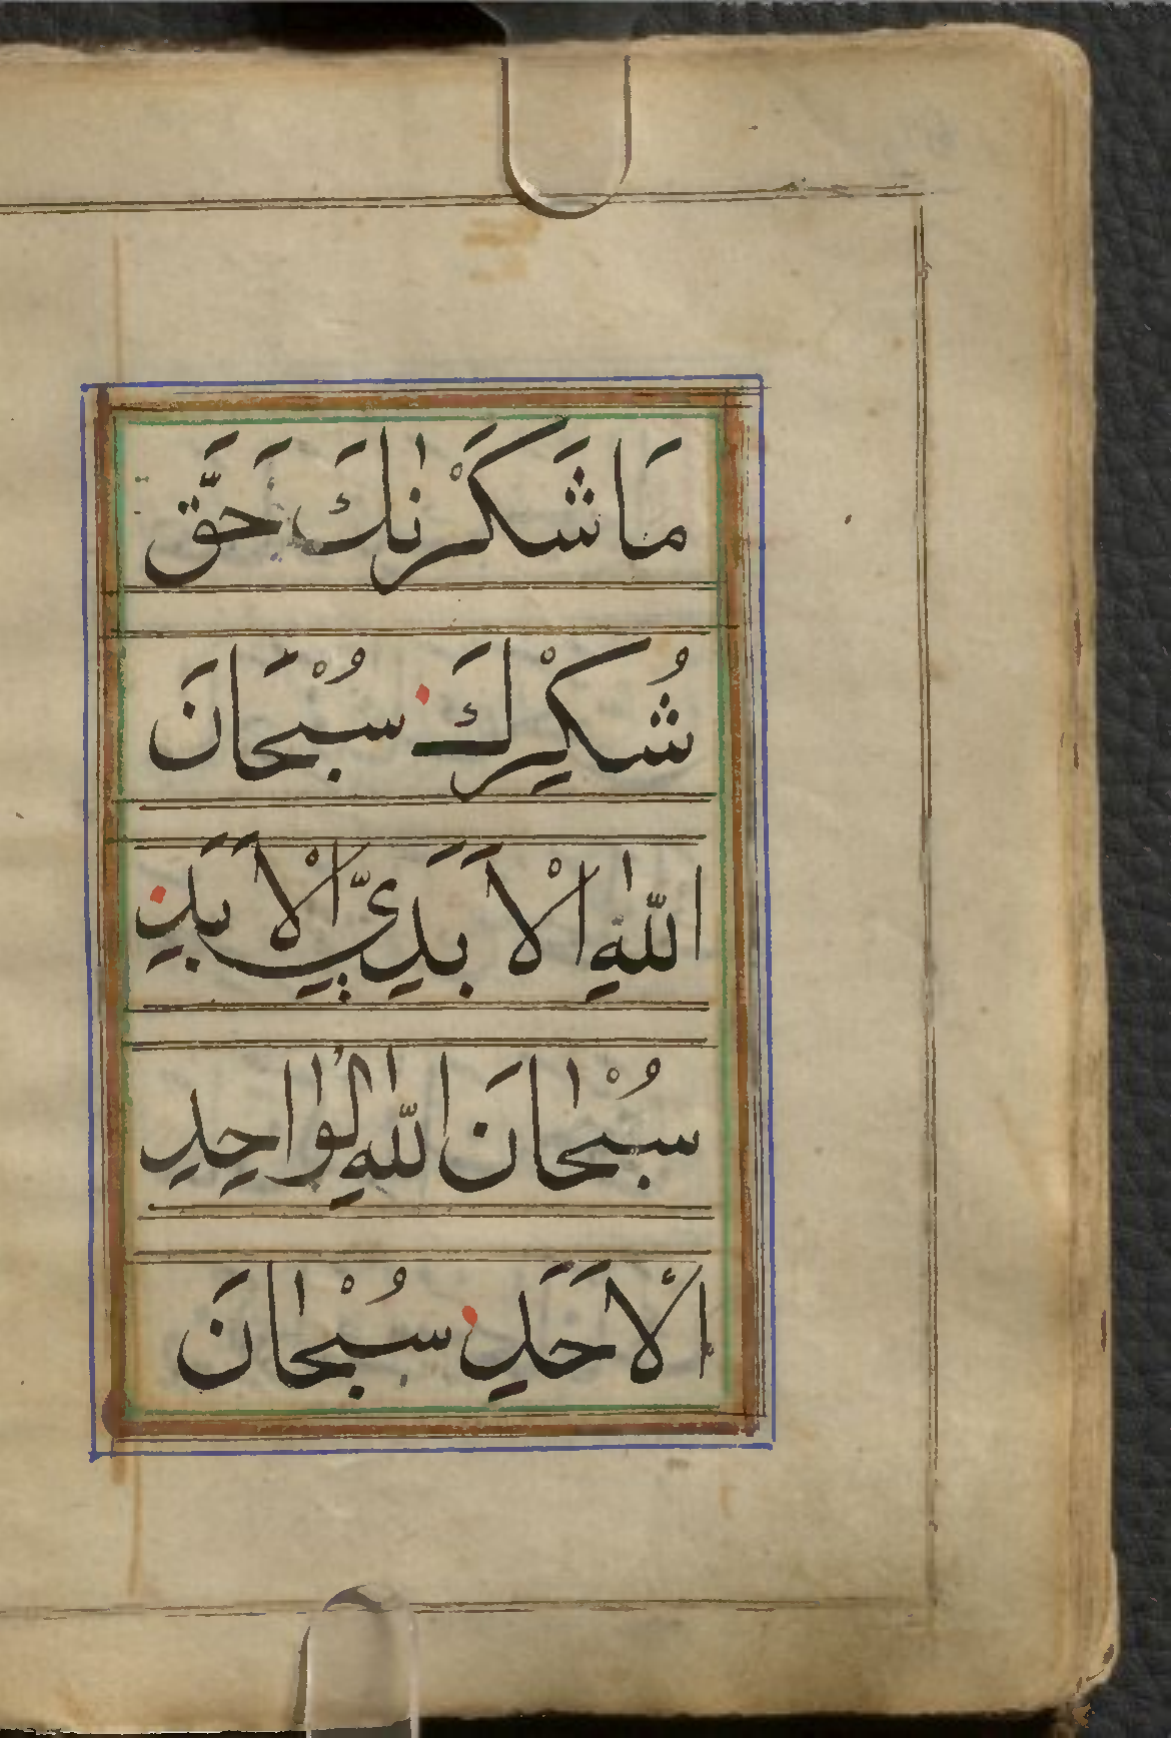 مَا شَكَرْنٰكَ حَقَّ
شُكْرِكَ سُبْحَانَ
اللّٰهِ الْاَبَدِيِّ الْاَبَدِ
سُبْحٰانَ اللّٰهِ الْوٰاحِدِ
الْاَحَدِ سُبْحٰانَ